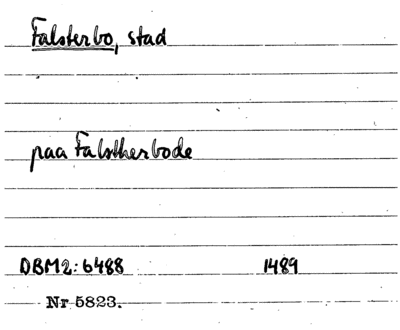 Falsterbo, stad
paa Falstherbode
DBM2: 6488 1489
Nr 5823.